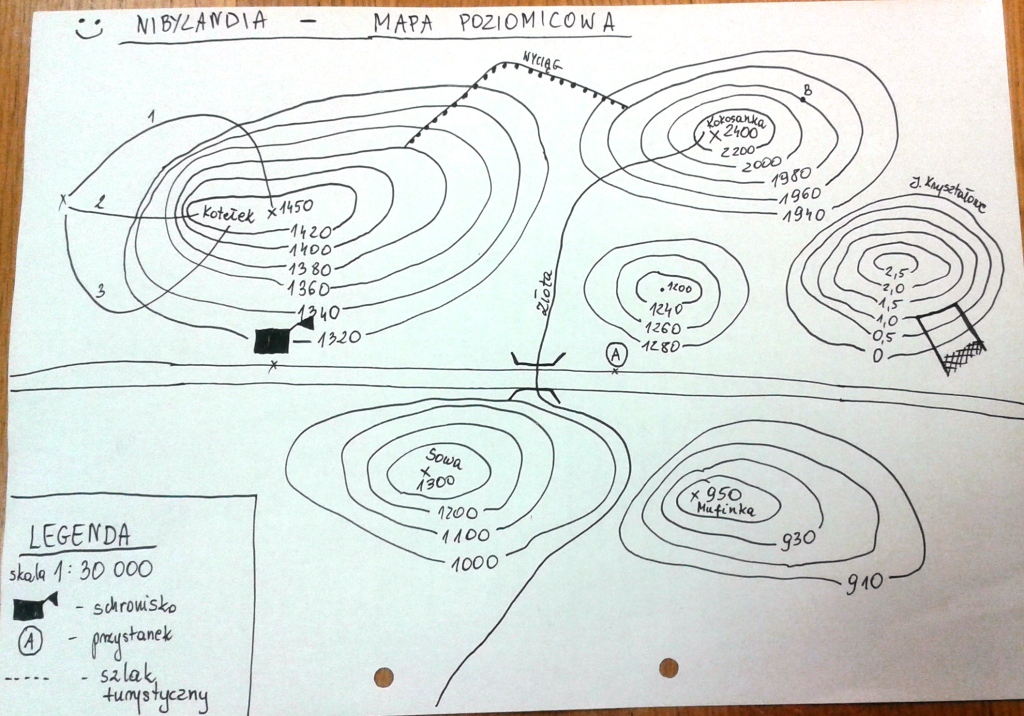 NIBYLANDIA – MAPA POZIOMICOWA
WYCIĄG
1
2
3
Kotełek
1450
1420
1400
1380
1360
1340
1320
B
Kokosanka
2400
2200
2000
1980
1960
1940
żółta
1200
1240
1260
1280
A
J. Kryształowe
2,5
2,0
1,5
1,0
0,5
0
Sowa
1300
1200
1100
1000
950
Mufinka
930
910
LEGENDA
skala 1:30 000
- schronisko
A - przystanek
----- - szlak
turystyczny